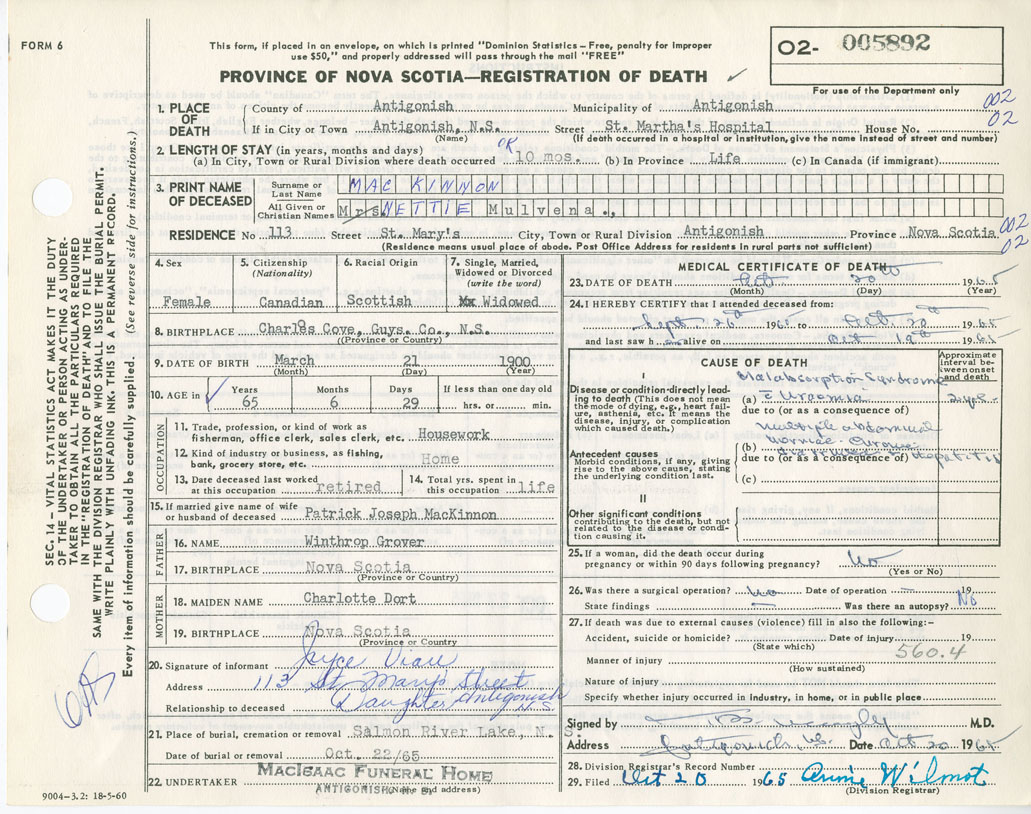 FORM 6
This form, if placed in an envelope, on which is printed "Dominion Statistics – Free, penalty for improper
use $50," and properly addressed will pass through the mail "FREE"
O2- 005892
PROVINCE OF NOVA SCOTIA—REGISTRATION OF DEATH ✓
For use of the Department only
1. PLACE OF DEATH
County of Antigonish Municipality of Antigonish 002
02
If in City or Town Antigonish, N.S. Street St. Martha's Hospital House No.
(Name) (If death occurred in a hospital or institution, give the name instead of street and number)
2. LENGTH OF STAY (in years, months and days) OK
(a) In City, Town or Rural Division where death occurred 10 mos. (b) In Province Life (c) In Canada (if immigrant)
3. PRINT NAME OF DECEASED
Surname or Last Name MAC KINNON
All Given or Christian Names Mrs. NETTIE Mulvena.,
RESIDENCE No 113 Street St. Mary's City, Town or Rural Division Antigonish Province Nova Scotia 002
02
(Residence means usual place of abode. Post Office Address for residents in rural parts not sufficient)
4. Sex
Female
5. Citizenship
(Nationality)
Canadian
6. Racial Origin
Scottish
7. Single, Married,
Widowed or Divorced
(write the word)
Widowed
8. BIRTHPLACE Charles Cove, Guys. Co., N.S.
(Province or Country)
9. DATE OF BIRTH March 21 1900
(Month) (Day) (Year)
10. AGE in ✓ Years Months Days If less than one day old
65 6 29 hrs. or min.
OCCUPATION
11. Trade, profession, or kind of work as
fisherman, office clerk, sales clerk, etc. Housework
12. Kind of industry or business, as fishing,
bank, grocery store, etc. Home
13. Date deceased last worked
at this occupation retired
14. Total yrs. spent in
this occupation life
15. If married give name of wife
or husband of deceased Patrick Joseph MacKinnon
FATHER
16. NAME Winthrop Grover
17. BIRTHPLACE Nova Scotia
(Province or Country)
MOTHER
18. MAIDEN NAME Charlotte Dort
19. BIRTHPLACE Nova Scotia
(Province or Country)
20. Signature of informant Joyce
Address 113 St Marys Street
Antigonish N.S
Relationship to deceased Daughter
21. Place of burial, cremation or removal Salmon River Lake, N. S.
Date of burial or removal Oct. 22/65
22. UNDERTAKER MACISAAC FUNERAL HOME
ANTIGONISH, N. S.
(Name and address)
9004-3.2: 18-5-60
SEC. 14 – VITAL STATISTICS ACT MAKES IT THE DUTY
OF THE UNDERTAKER OR PERSON ACTING AS UNDER-
TAKER TO OBTAIN ALL THE PARTICULARS REQUIRED
IN THE "REGISTRATION OF DEATH" AND TO FILE THE
SAME WITH THE DIVISION REGISTRAR WHO SHALL ISSUE THE BURIAL PERMIT.
WRITE PLAINLY WITH UNFADING INK. THIS IS A PERMANENT RECORD.
Every item of information should be carefully supplied. (See reverse side for instructions.)
MEDICAL CERTIFICATE OF DEATH
23. DATE OF DEATH Oct 20 1965
(Month) (Day) (Year)
24. I HEREBY CERTIFY that I attended deceased from:
Sept. 26th 1965 to Oct. 20th 1965
and last saw h er alive on Oct 19th 1965
CAUSE OF DEATH
Approximate interval between onset and death
I
Disease or condition directly lead-
ing to death (This does not mean
the mode of dying, e.g., heart fail-
ure, asthenia, etc. It means the
disease, injury, or complication
which caused death.)
Malabsorption Syndrome
(a) c Uraemia 2 yrs
due to (or as a consequence of)
Multiple abdominal
(b)
due to (or as a consequence of)
Antecedent causes
Morbid conditions, if any, giving
rise to the above cause, stating
the underlying condition last.
(c)
II
Other significant conditions
contributing to the death, but not
related to the disease or condi-
tion causing it.
25. If a woman, did the death occur during
pregnancy or within 90 days following pregnancy? No
(Yes or No)
26. Was there a surgical operation? no Date of operation – 19
State findings – Was there an autopsy? No
27. If death was due to external causes (violence) fill in also the following:–
Accident, suicide or homicide? Date of injury 19
(State which)
560.4
Manner of injury
(How sustained)
Nature of injury
Specify whether injury occurred in industry, in home, or in public place
Signed by M.D.
Address Antigonish, N.S. Date Oct 20 1965
28. Division Registrar's Record Number
29. Filed Oct 20 1965 Annie Wilmot
(Division Registrar)